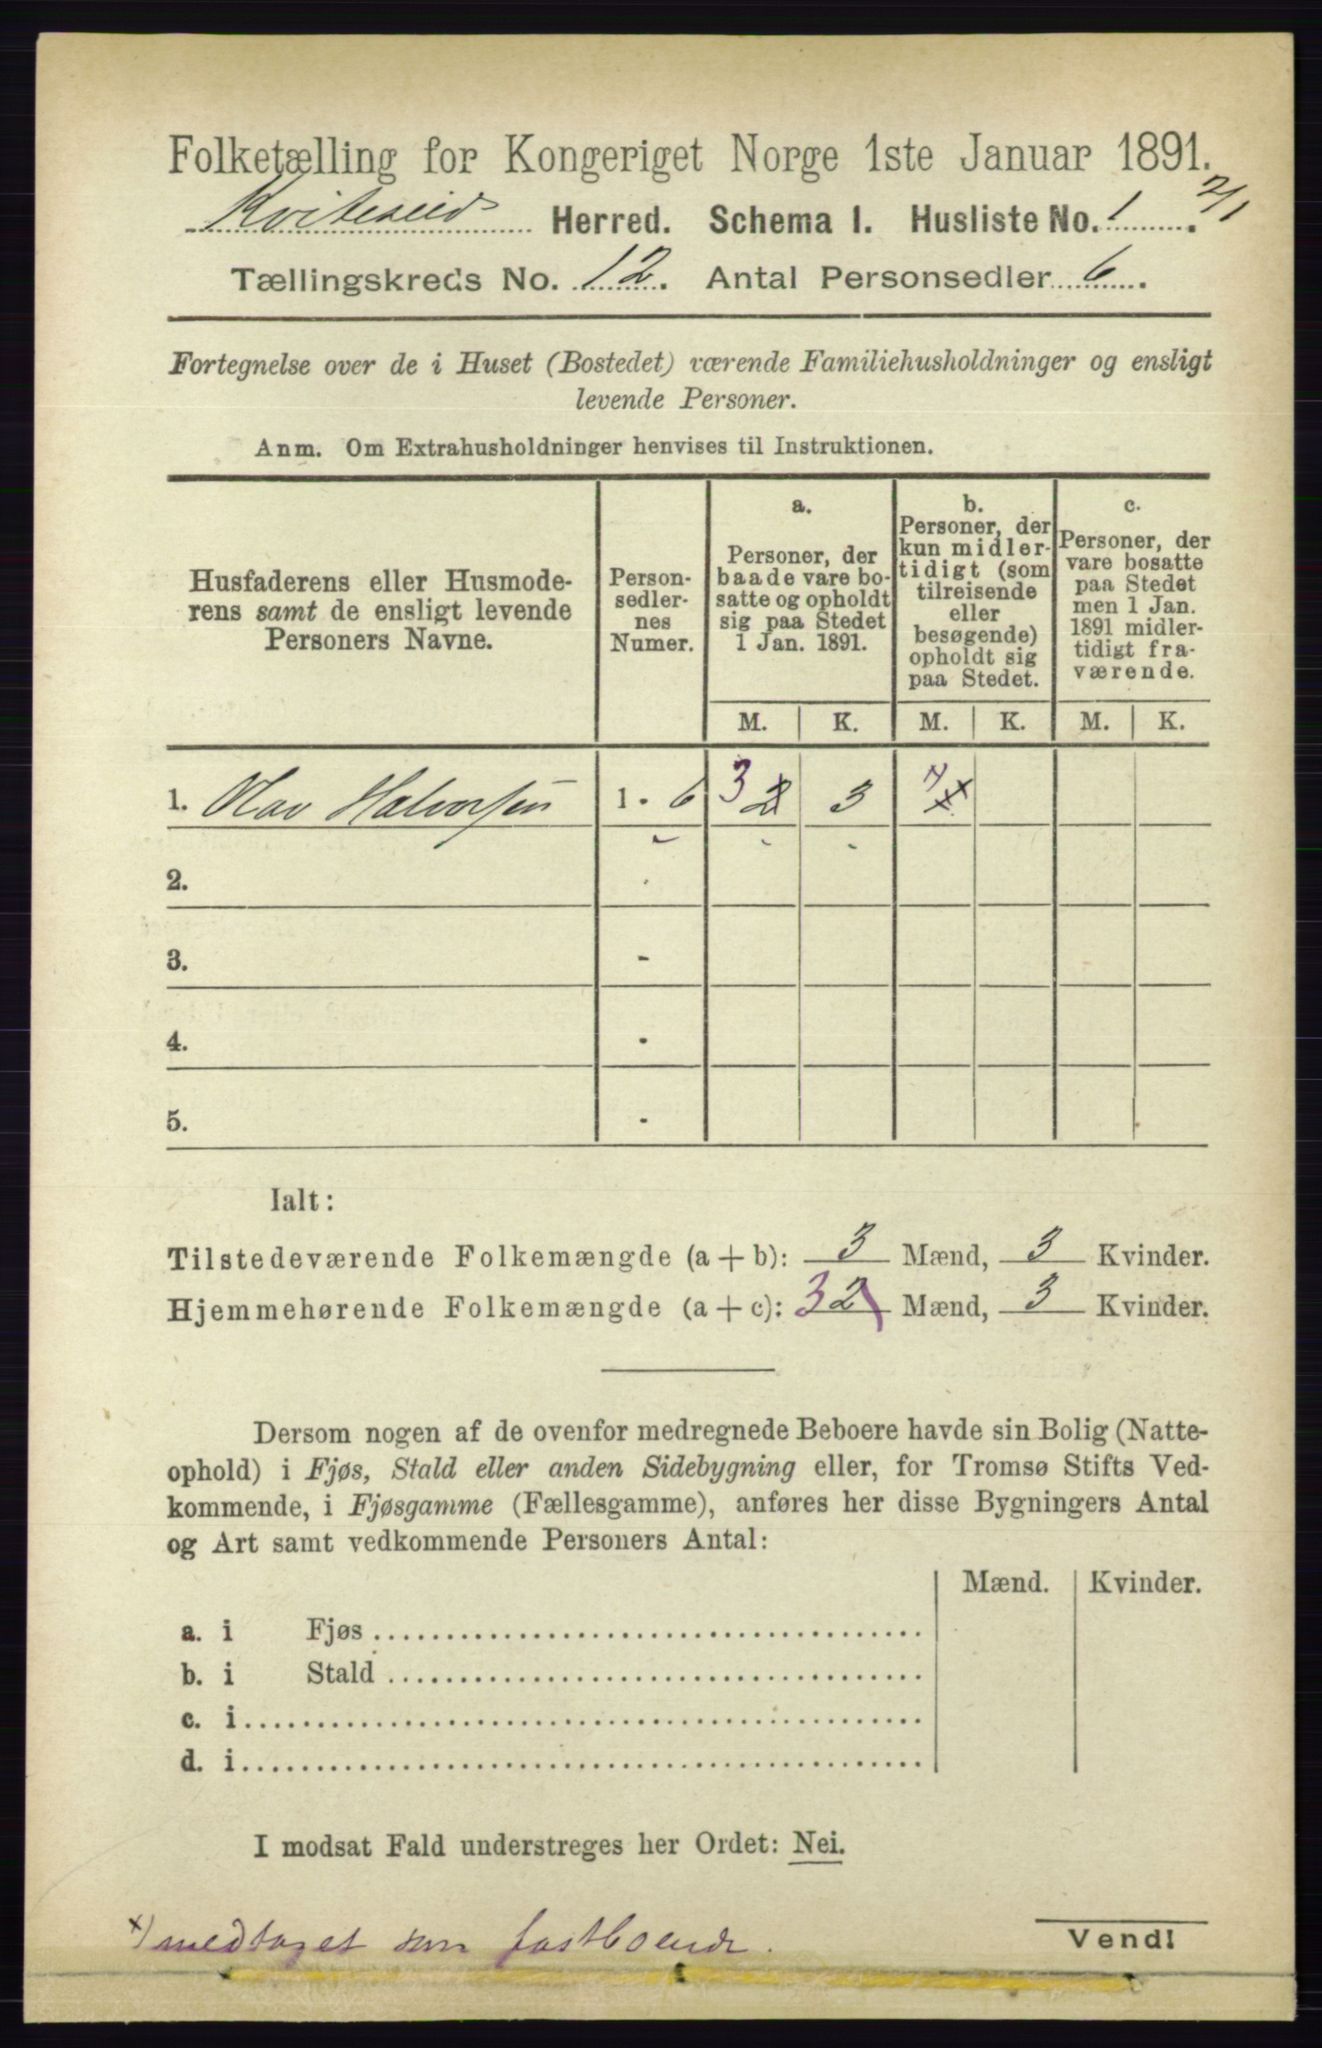 Folketælling for Kongeriget Norge 1ste Januar 1891.
Kviteseid Herred. Schema I. Husliste No. 1.
Tællingskreds No. 12. Antal Personsedler 6.
Fortegnelse over de i Huset (Bostedet) værende Familiehusholdninger og ensligt
levende Personer.
Anm. Om Extrahusholdninger henvises til Instruktionen.
Husfaderens eller Husmode-
rens samt de ensligt levende
Personers Navne.
Person-
sedler-
nes
Numer.
a.
Personer, der
baade vare bo-
satte og opholdt
sig paa Stedet
1 Jan. 1891.
b.
Personer, der
kun midler-
tidigt (som
tilreisende
eller
besøgende)
opholdt sig
paa Stedet.
c.
Personer, der
vare bosatte
paa Stedet
men 1 Jan.
1891 midler-
tidigt fra-
værende.
M. K. M. K. M. K.
1. Olav Halvorsen 1 - 6 3 2 3
2.
3. -
4. -
5. -
Ialt:
Tilstedeværende Folkemængde (a + b): 3 Mænd, 3 Kvinder.
Hjemmehørende Folkemængde (a + c): 3 2 Mænd, 3 Kvinder.
Dersom nogen af de ovenfor medregnede Beboere havde sin Bolig (Natte-
ophold) i Fjøs, Stald eller anden Sidebygning eller, for Tromsø Stifts Ved-
kommende, i Fjøsgamme (Fællesgamme), anføres her disse Bygningers Antal
og Art samt vedkommende Personers Antal:
Mænd. Kvinder.
a. i Fjøs
b. i Stald
c. i
d. i
I modsat Fald understreges her Ordet: Nei.
x) medtaget som fastboende.
Vend!